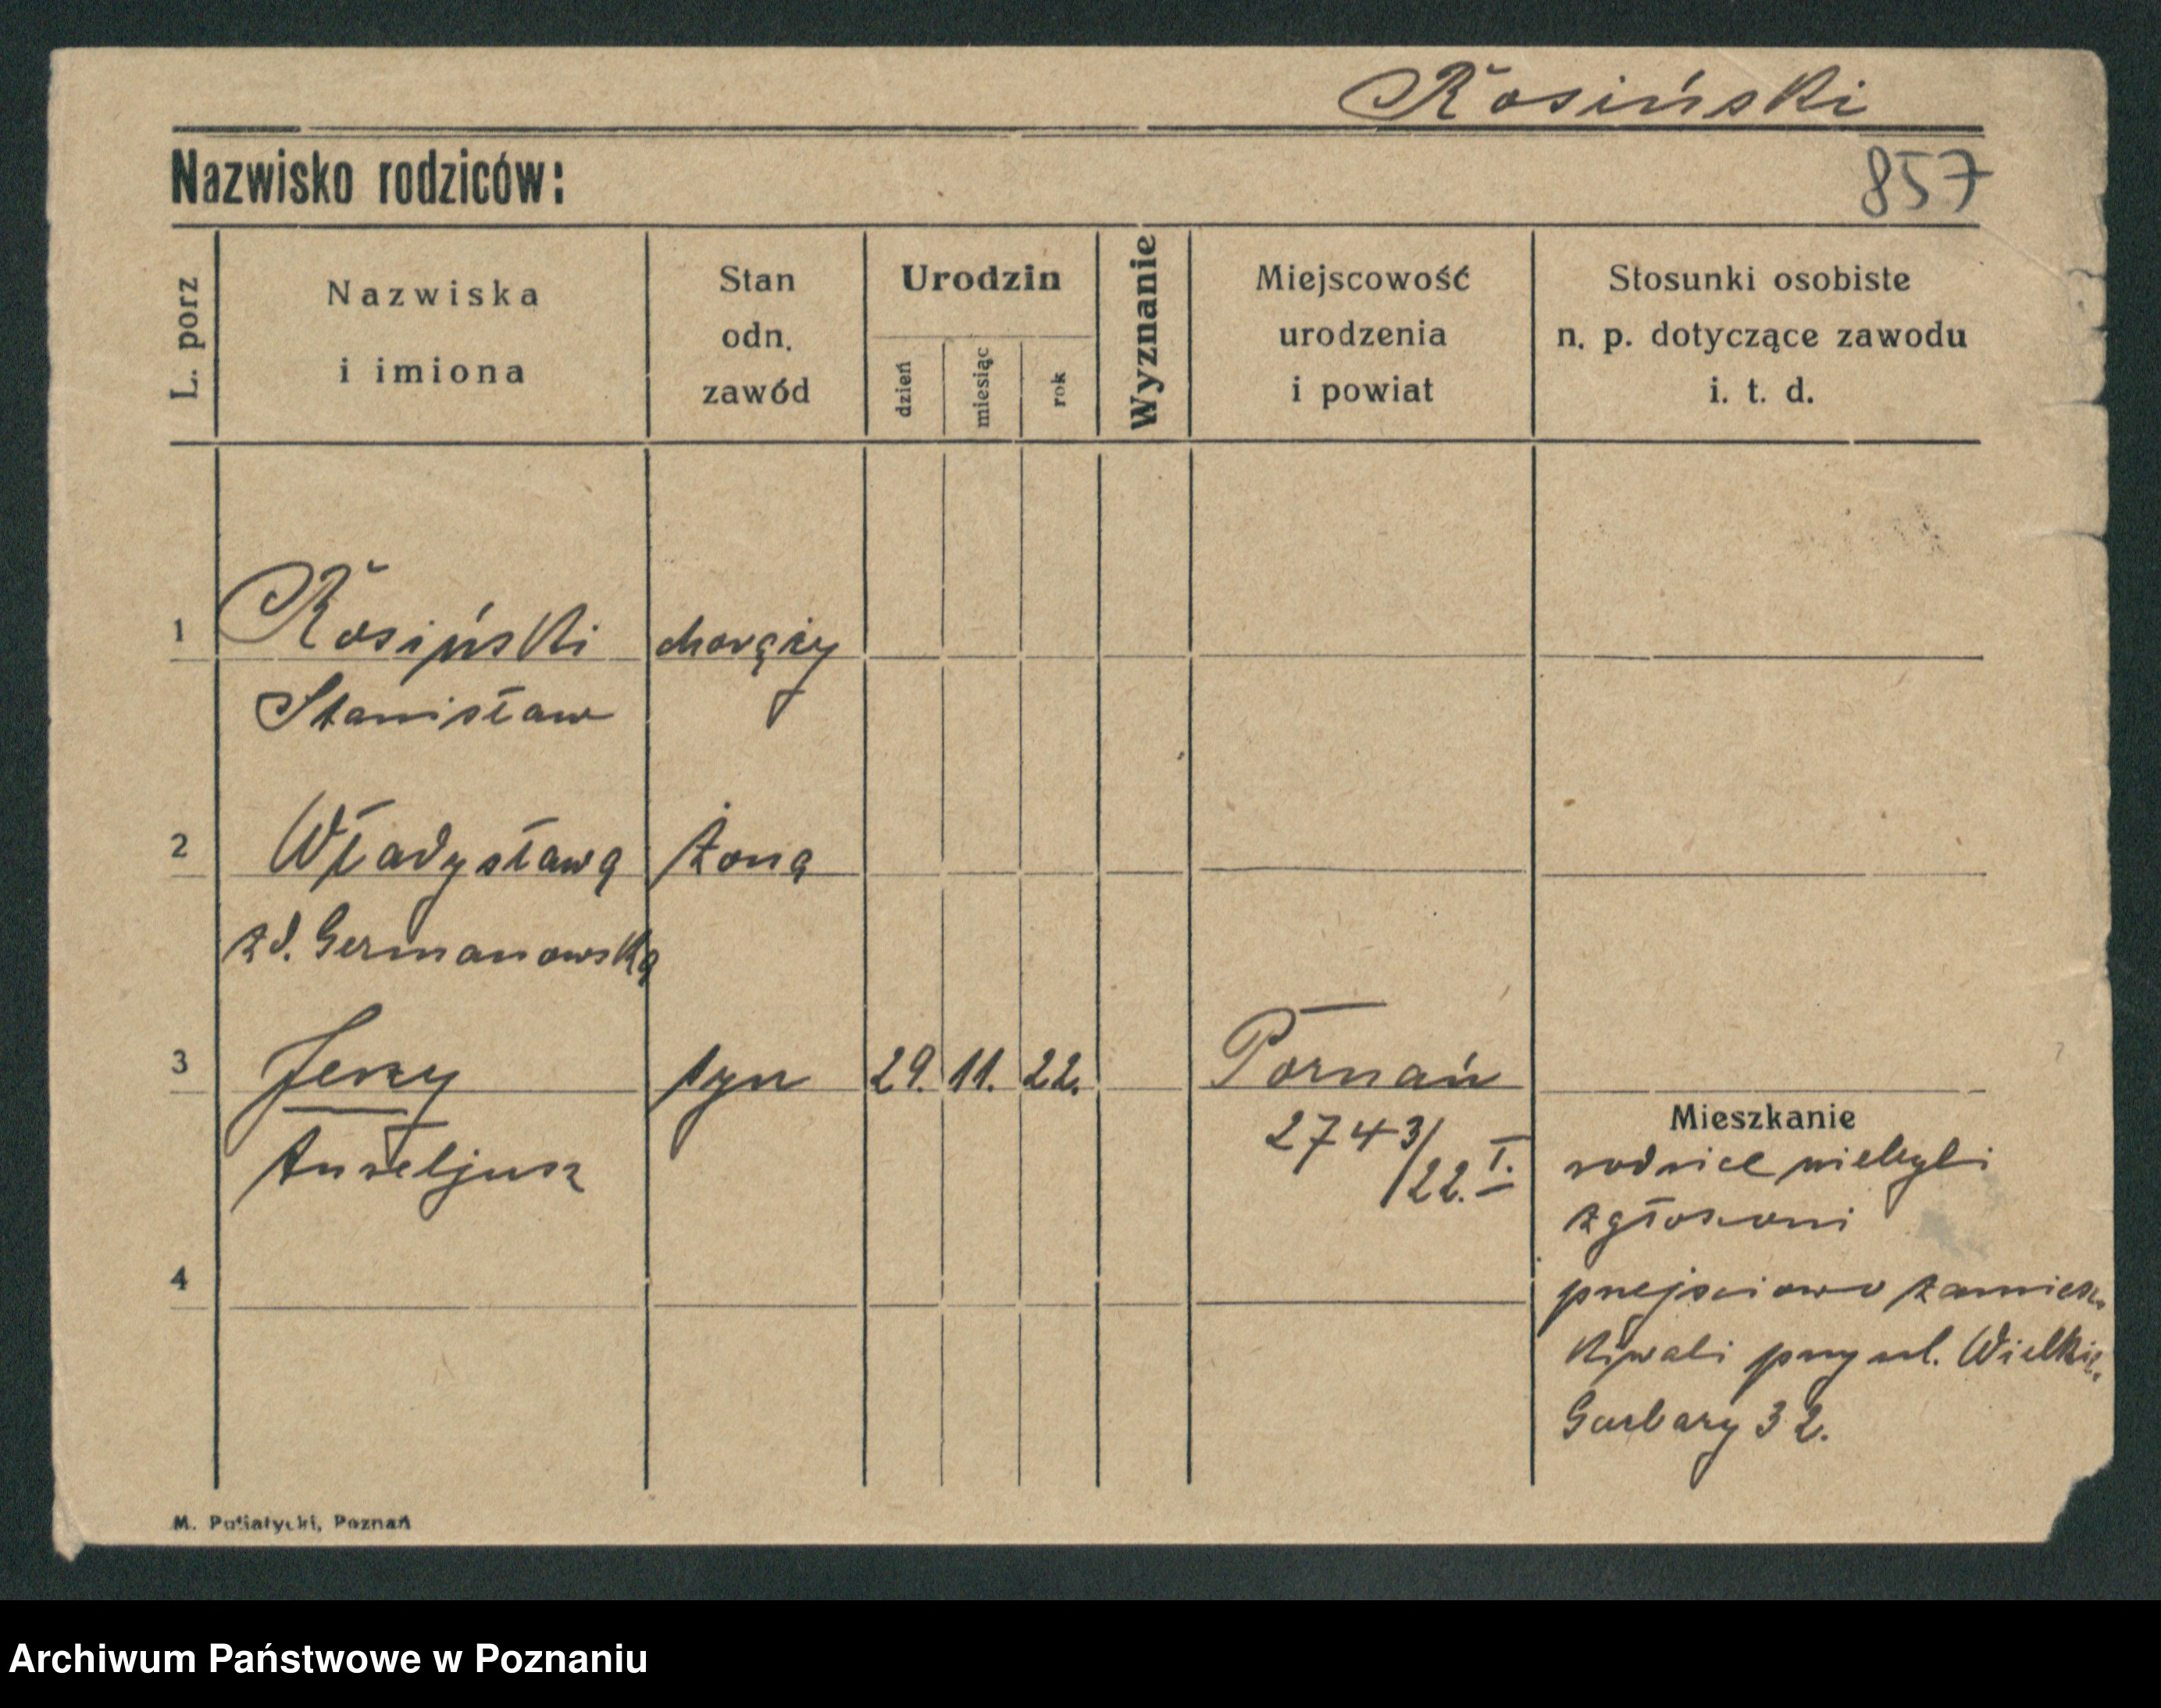 Rosiński
Nazwisko rodziców:
857
L. porz
Nazwiska
i imiona
Stan
odn.
zawód
Urodzin
dzień
miesiąc
rok
Wyznanie
Miejscowość
urodzenia
i powiat
Stosunki osobiste
n. p. dotyczące zawodu
i. t. d.
1 Rosiński chorąży
Stanisław
2 Władysława żona
zd. Germanowska
3 Jerzy syn 29. 11. 22. Poznań
Aureljusz
2743/22. I.
Mieszkanie
rodzice niebyli
zgłoszeni
4
przejściowo zamiesz
kiwali przy ul. Wielkie
Garbary 32.
M. Putiatycki, Poznań
Archiwum Państwowe w Poznaniu